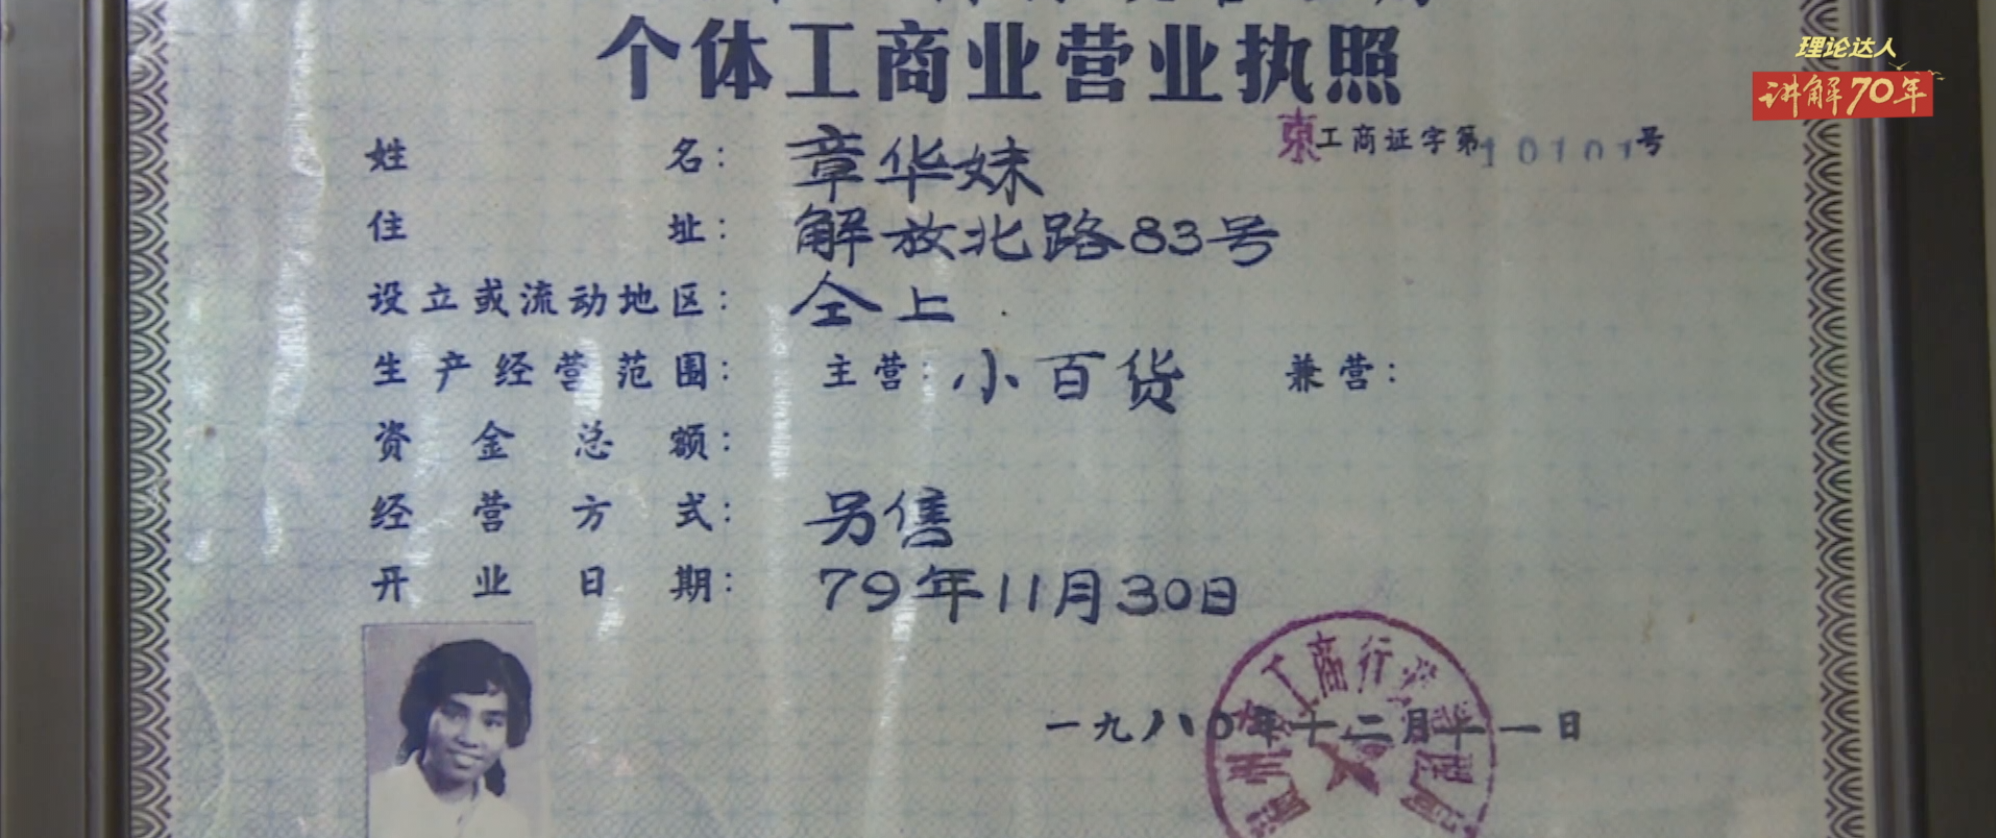 理论达人
讲解70年
个体工商业营业执照
东工商证字第10101号
姓名：章华妹
住址：解放北路83号
设立或流动地区：仝上
生产经营范围：主营：小百货 兼营：
资金总额：
经营方式：另售
开业日期：79年11月30日
工商行
一九八〇年十二月十一日